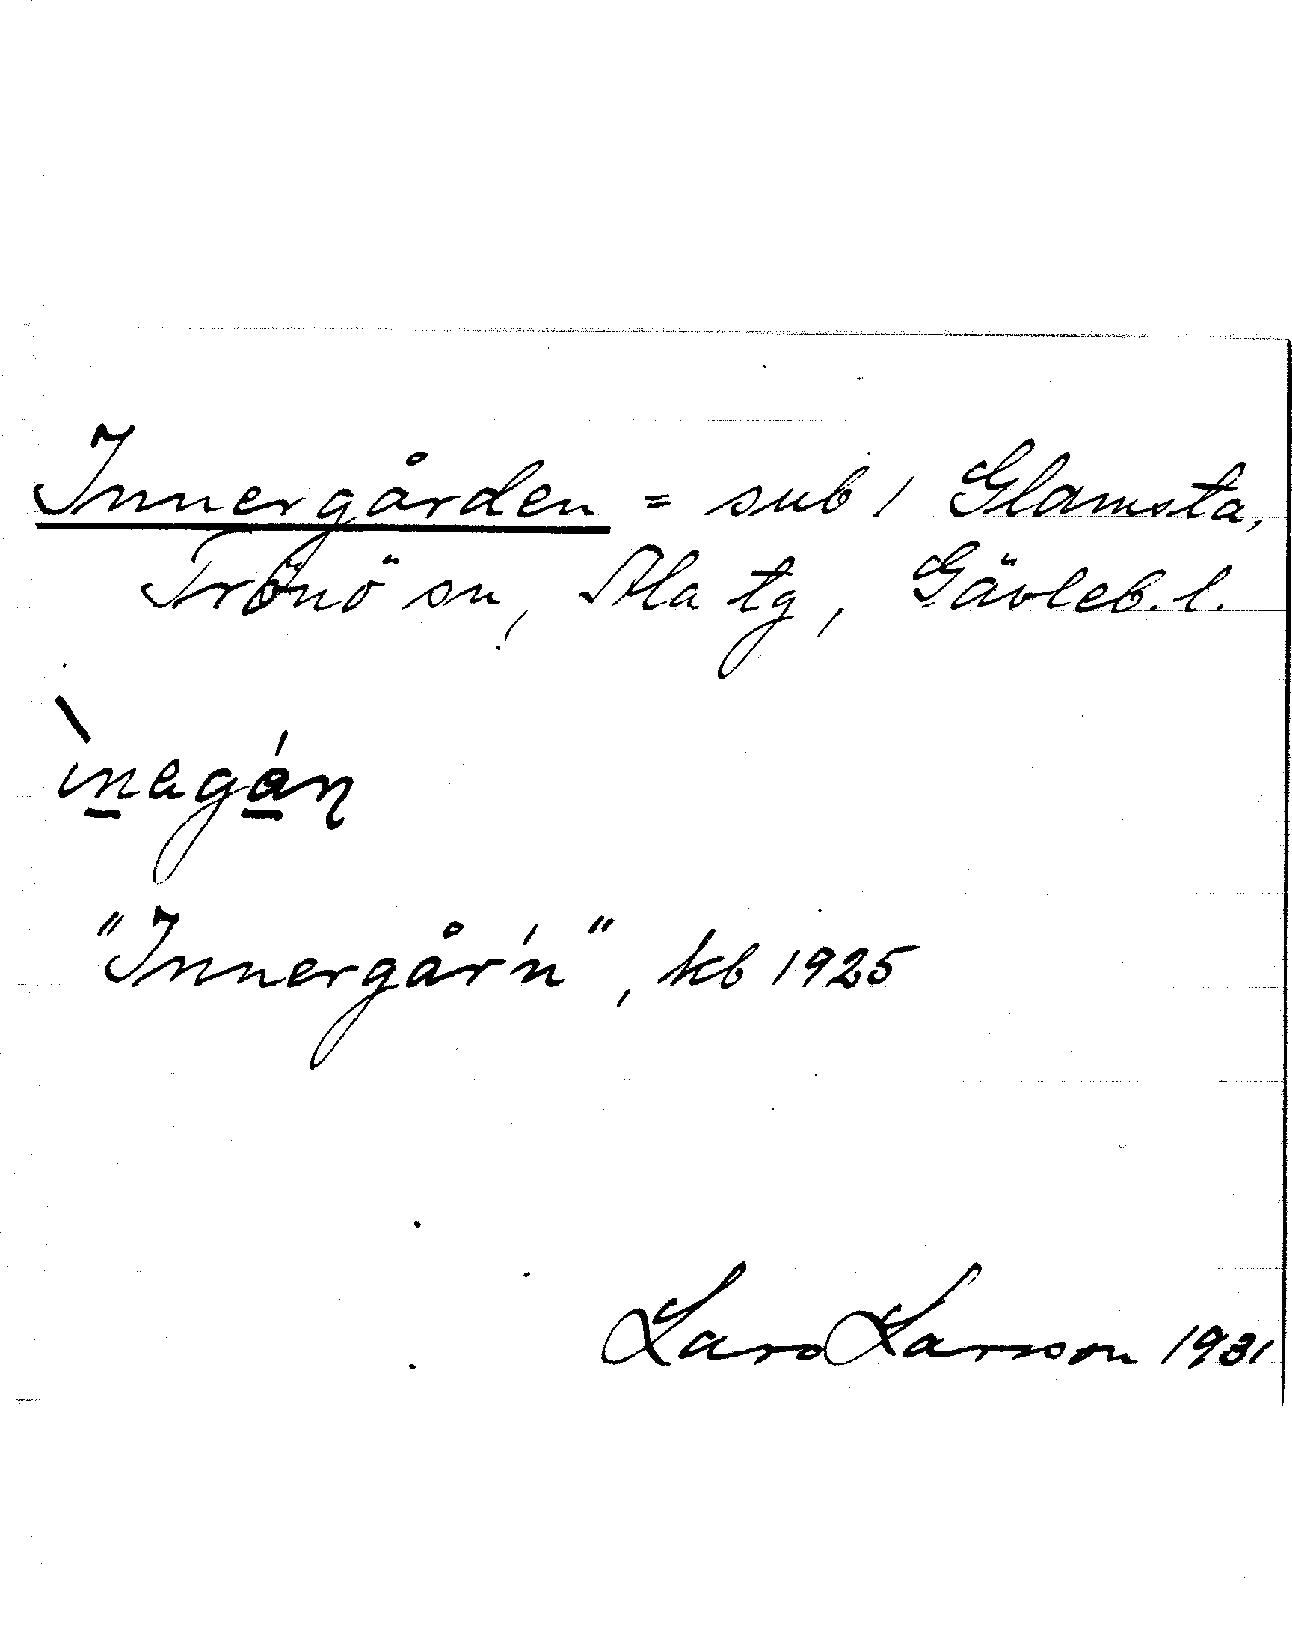 Innergården = sub 1 Glamsta,
Trönö sn, Ala tg, Gävleb. l.
ìnagán
"Innergår'n", kb 1925
Lars Larsson 1931